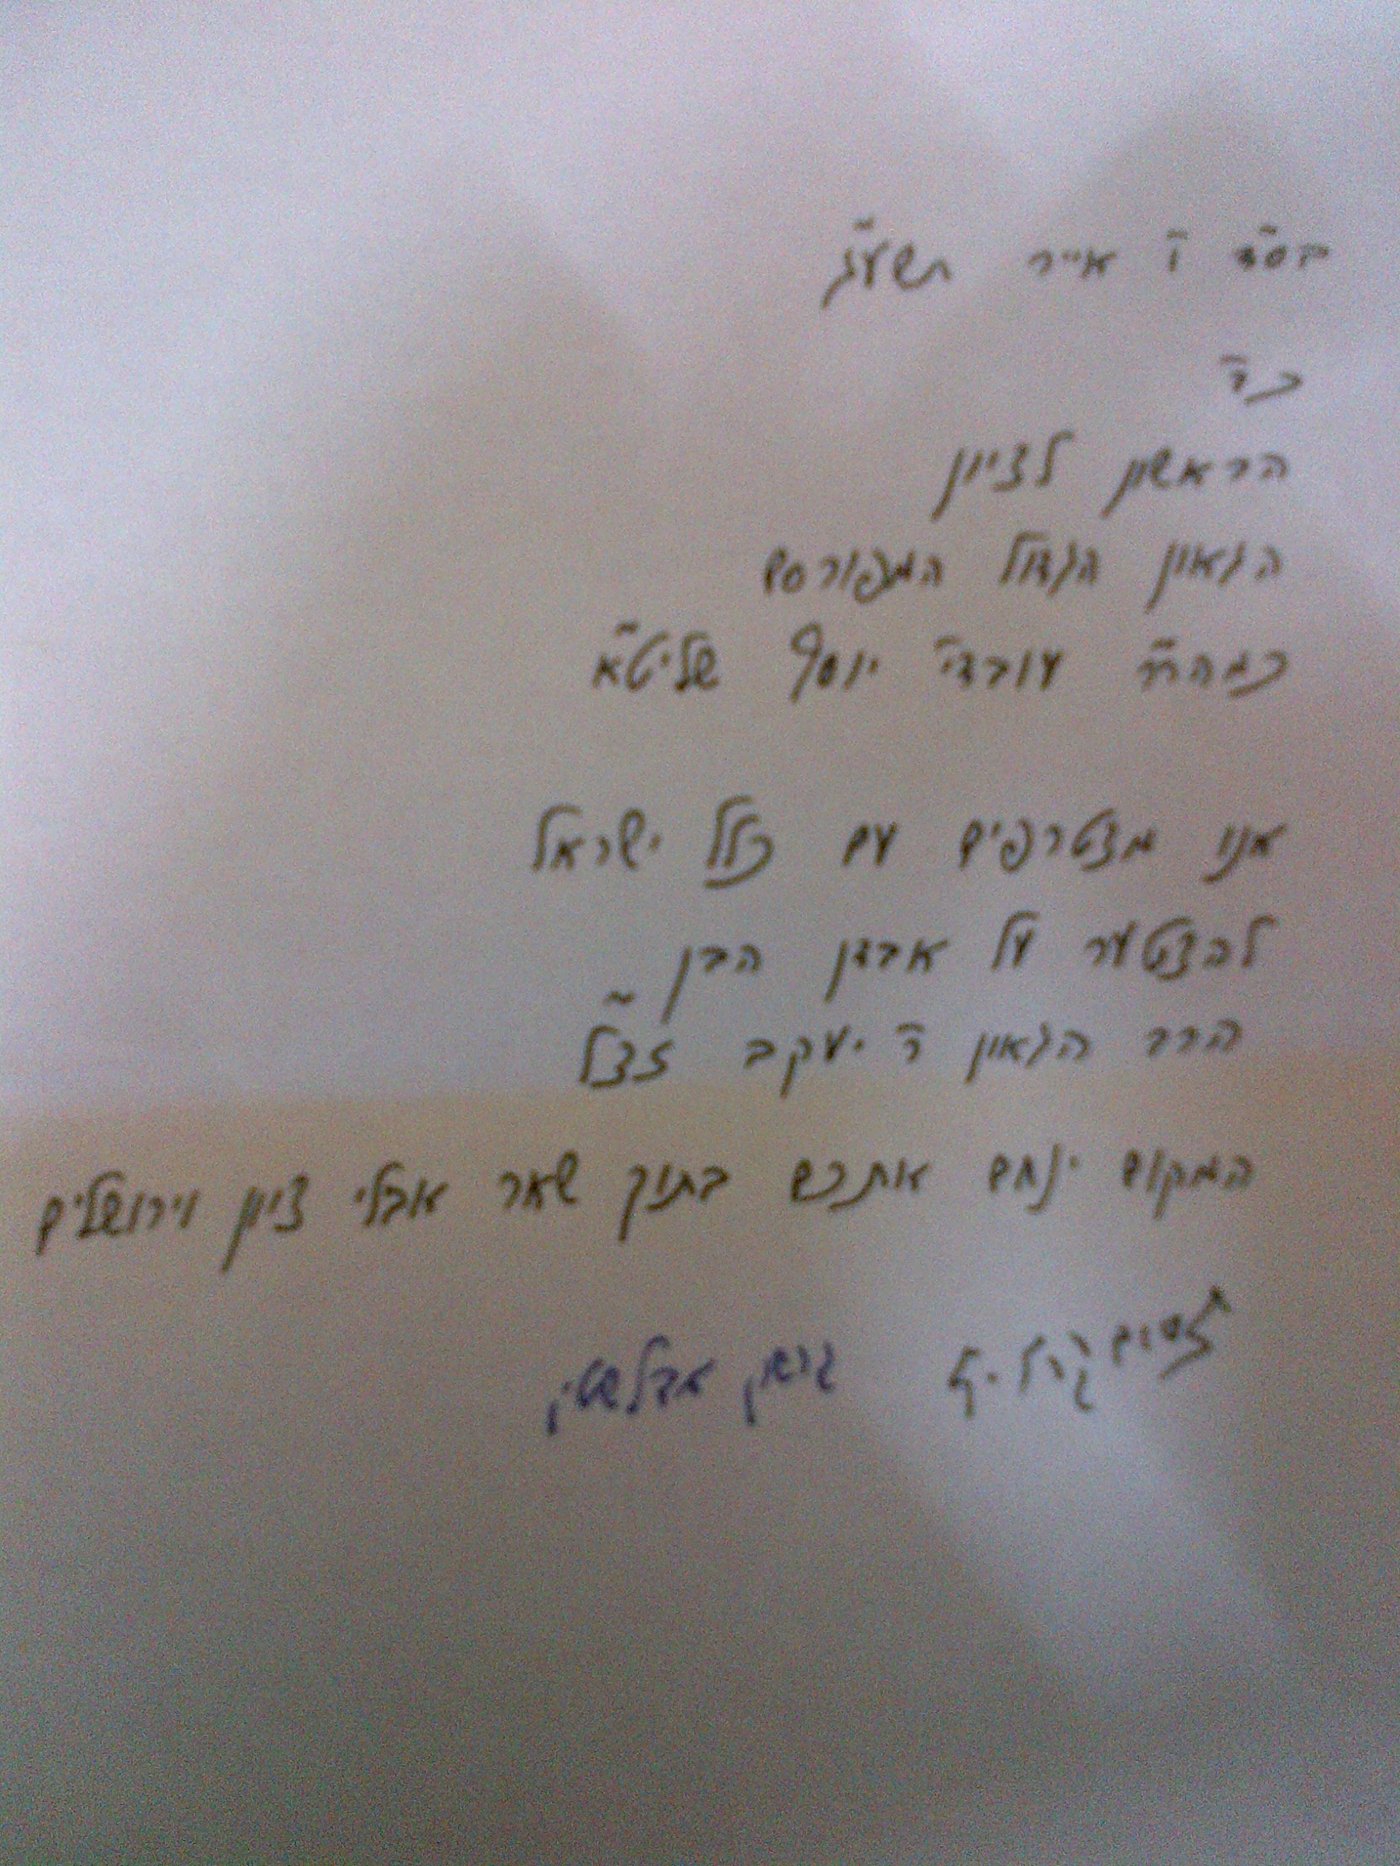 בס"ד ו' אייר תשע"ג
כ"ד
הראשון לציון
הגאון הגדול המפורסם
כמהר"ר עובדי' יוסף שליט"א
אנו מצטרפים עם כלל ישראל
להצטער על אבדן הבן
הרב הגאון ר' יעקב זצ"ל
המקום ינחם אתכם בתוך שאר אבלי ציון וירושלים
גרשון אדלשטין